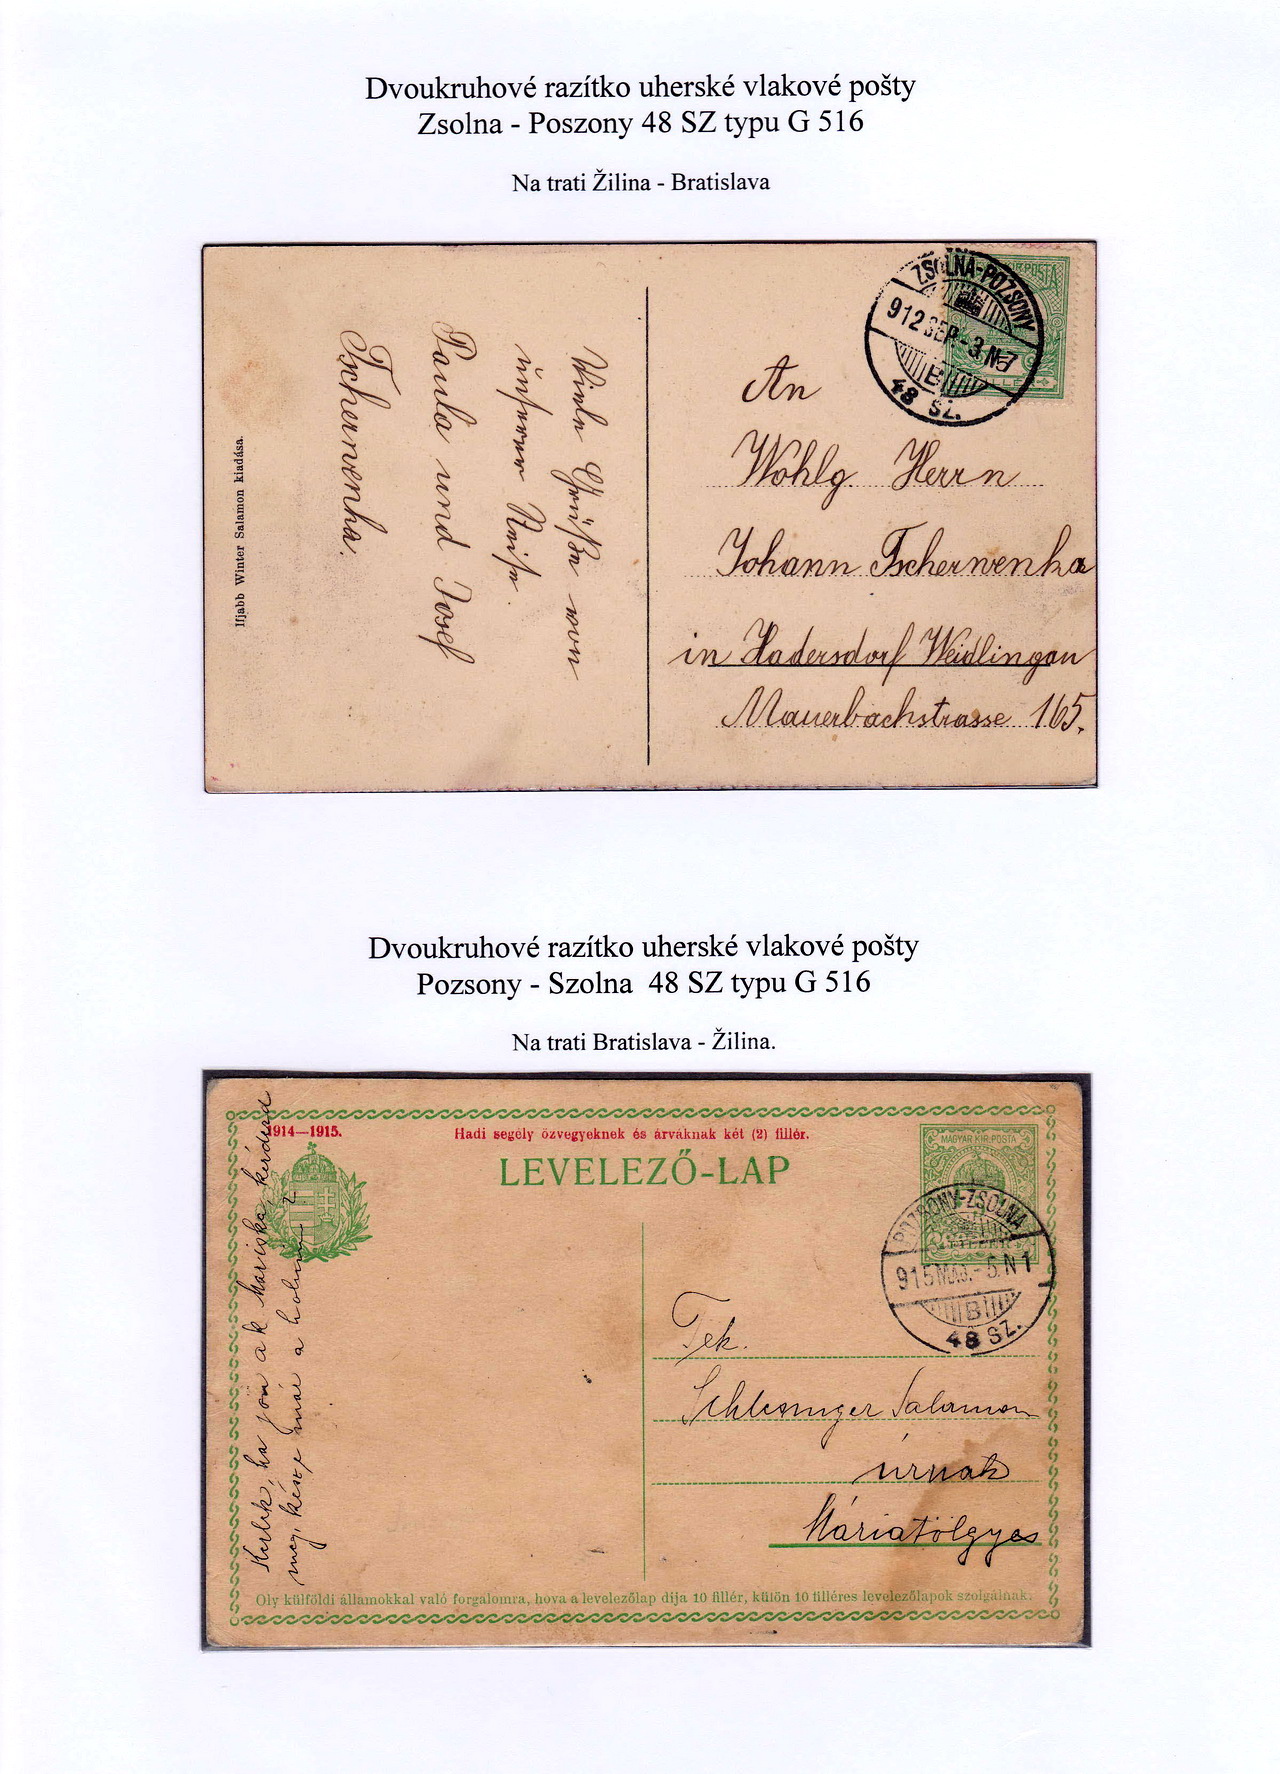 Dvoukruhové razítko uherské vlakové pošty
Zsolna - Poszony 48 SZ typu G 516
Na trati Žilina - Bratislava
ZSOLNA-POZSONY
912 SEP.-3.N
B
48 SZ.
An
Wohlg. Herrn
Johann Tscherwenka
in Hadersdorf Weidlingau
Mauerbachstrasse 165.
Viele Grüße von
unserer Reise.
Paula und Josef
Tscherwenka.
Ifjabb Winter Salamon kiadása.
Dvoukruhové razítko uherské vlakové pošty
Pozsony - Szolna 48 SZ typu G 516
Na trati Bratislava - Žilina.
1914—1915.
Hadi segély özvegyeknek és árváknak két (2) fillér.
LEVELEZŐ-LAP
MAGYAR KIR. POSTA
POZSONY-ZSOLNA
915 MÁJ.-5.N1
B
48 SZ.
Tek.
Schlesinger Salamon
úrnak
Máriatölgyes
ha jön a k. Mariska, kérdezd
meg, kész-e már a
Oly külföldi államokkal való forgalomra, hova a levelezőlap díja 10 fillér, külön 10 filléres levelezőlapok szolgálnak.